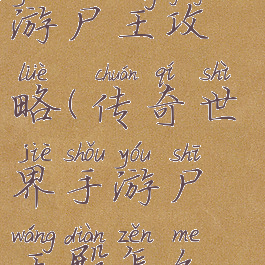 游尸王攻
lüè chuán qí shì
略(传奇世
jiè shǒu yóu shī
界手游尸
wáng diàn zěn me